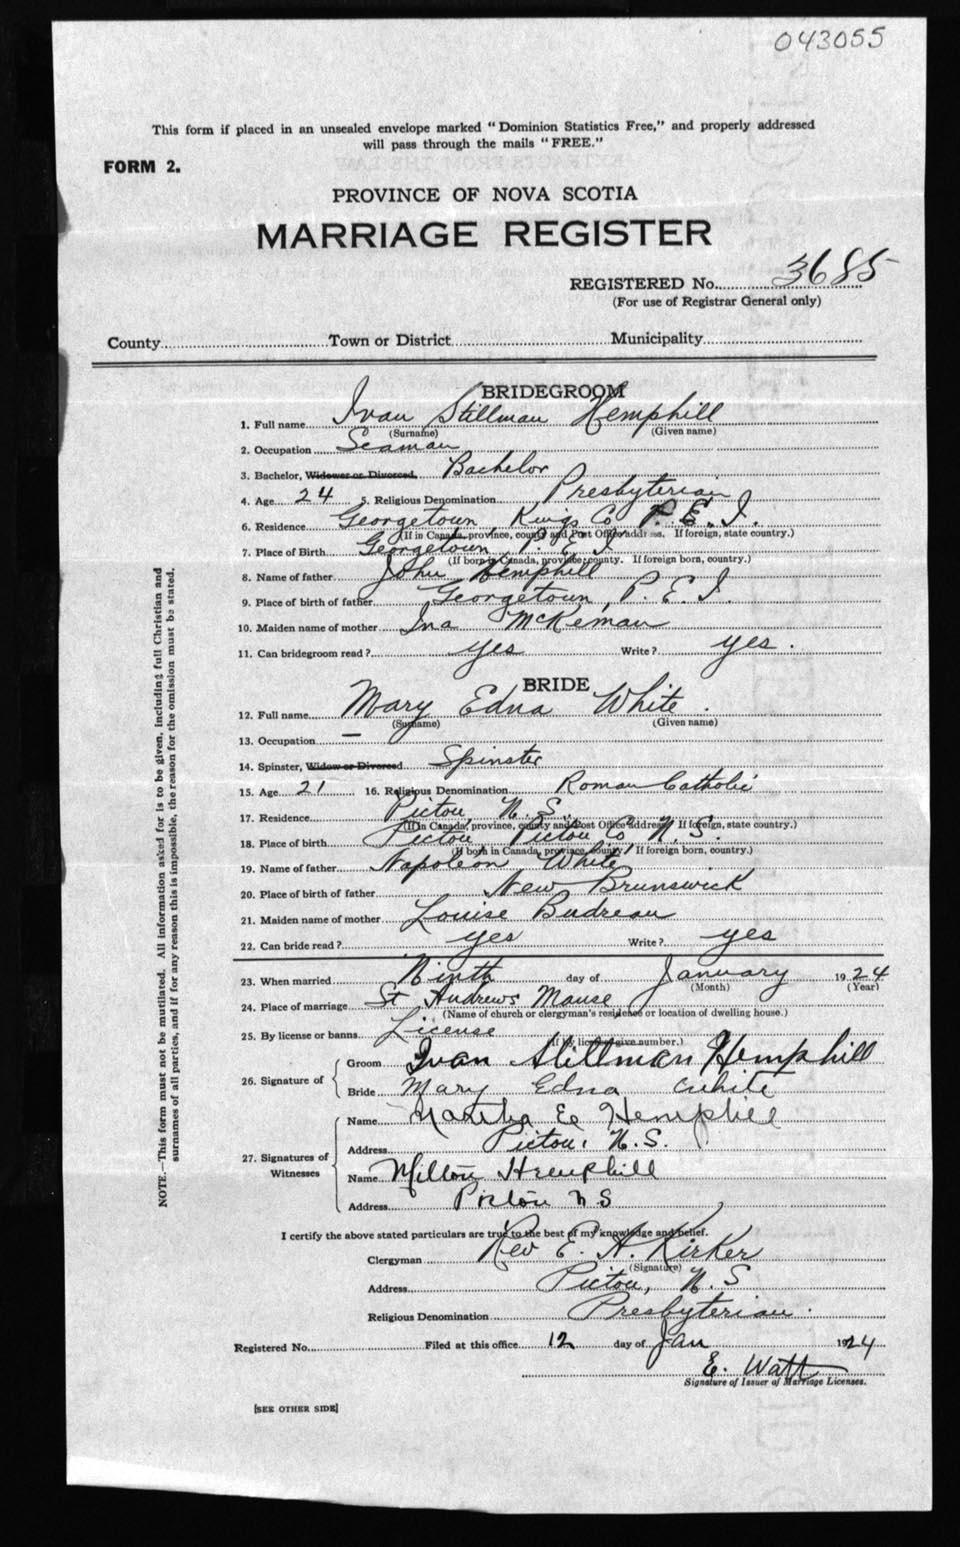 043055
This form if placed in an unsealed envelope marked "Dominion Statistics Free," and properly addressed
will pass through the mails "FREE."
FORM 2.
PROVINCE OF NOVA SCOTIA
MARRIAGE REGISTER
REGISTERED No. 3685
(For use of Registrar General only)
County Town or District Municipality
BRIDEGROOM
1. Full name Ivan Stillman Hemphill
(Surname) (Given name)
2. Occupation Seaman
3. Bachelor, Widower or Divorced. Bachelor
4. Age 24 5. Religious Denomination Presbyterian
6. Residence Georgetown, Kings Co P.E.I.
(If in Canada, province, county and Post Office address. If foreign, state country.)
7. Place of Birth Georgetown P.E.I
(If born in Canada, province, county. If foreign born, country.)
8. Name of father John Hemphill
9. Place of birth of father Georgetown, P.E.I.
10. Maiden name of mother Ina
11. Can bridegroom read? yes Write? yes.
BRIDE
12. Full name Mary Edna White.
(Surname) (Given name)
13. Occupation —
14. Spinster, Widow or Divorced Spinster
15. Age 21 16. Religious Denomination Roman Catholic
17. Residence Pictou, N.S.
(If in Canada, province, county and Post Office address. If foreign, state country.)
18. Place of birth Pictou, Pictou Co N.S.
(If born in Canada, province, county. If foreign born, country.)
19. Name of father Napoleon White
20. Place of birth of father New Brunswick
21. Maiden name of mother Louise Budreau
22. Can bride read? yes Write? yes
23. When married Ninth day of January 1924
(Month) (Year)
24. Place of marriage St Andrews Manse
(Name of church or clergyman's residence or location of dwelling house.)
25. By license or banns License
(If by license give number.)
26. Signature of Groom Ivan Stillman Hemphill
Bride Mary Edna White
27. Signatures of Witnesses
Name Martha E Hemphill
Address Pictou, N.S.
Name Milton Hemphill
Address Pictou N S
I certify the above stated particulars are true to the best of my knowledge and belief.
Clergyman Rev E. A. Kirker
(Signature)
Address Pictou, N.S
Religious Denomination Presbyterian.
Registered No. Filed at this office 12 day of Jan 1924
E. Watt
Signature of Issuer of Marriage Licenses.
[SEE OTHER SIDE]
NOTE.—This form must not be mutilated. All information asked for is to be given, including full Christian and
surnames of all parties, and if for any reason this is impossible, the reason for the omission must be stated.